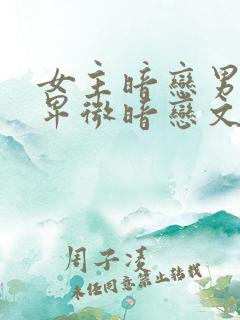 女主暗戀男
卑微暗戀文
周子凌
未经同意禁止转载